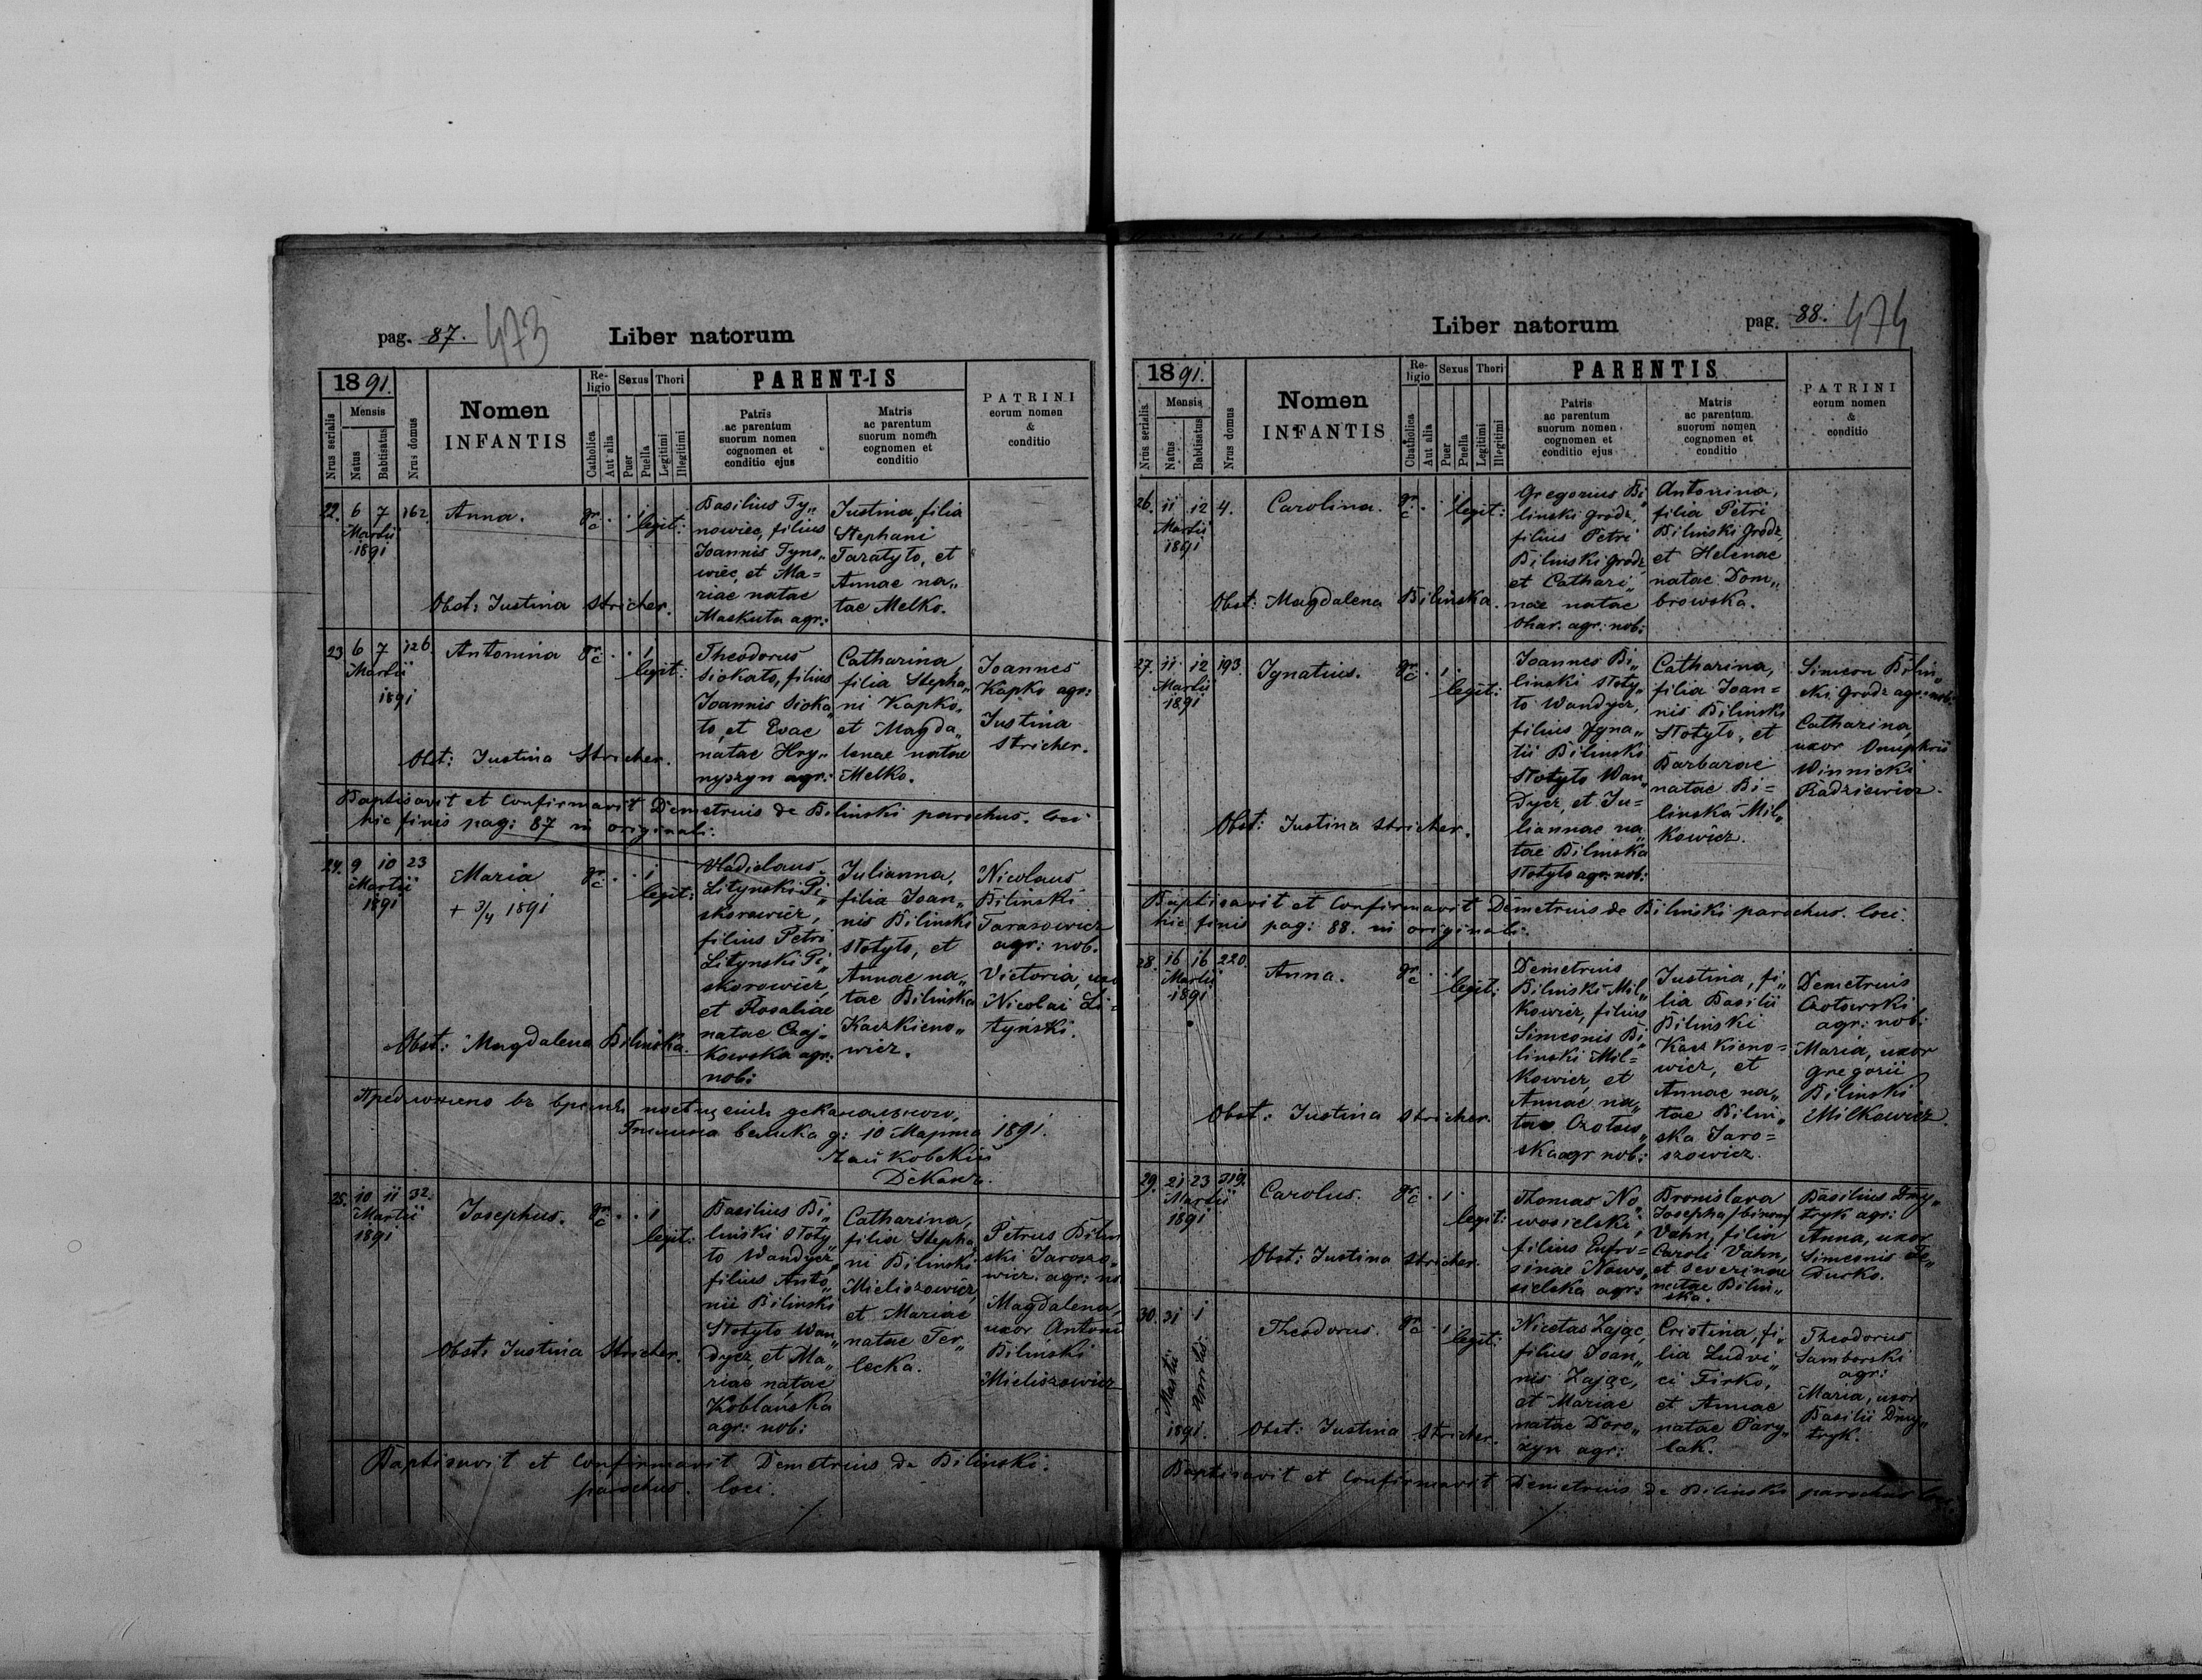 pag. 87. 473 Liber natorum
1891.
Nrus serialis
Mensis
Natus
Babtisatus
Nrus domus
Nomen
INFANTIS
Religio
Catholica
Aut alia
Sexus
Puer
Puella
Thori
Legitimi
Illegitimi
PARENTIS
Patris
ac parentum
suorum nomen
cognomen et
conditio ejus
Matris
ac parentum
suorum nomen
cognomen et
conditio
PATRINI
eorum nomen
&
conditio
22. 6 7 162. Anna. gr. c. . . i
Martii
1891
legit:
Basilius Ty„
nowiec, filius
Joannis Tyno„
wiec, et Ma=
riae natae
Maskuta agr:
Justina filia
Stephani
Taratyto, et
Annae na„
tae Melko.
Obst: Justina Stricher.
23 6 7 126. Antonina gr. c. . . i
Martii
1891
legit:
Theodorus
Siokato, filius
Joannis Sioka„
to, et Evae
natae Hry„
nyszyn agr:
Catharina,
filia Stepha„
ni Kapko,
et Magda„
lenae natae
Melko.
Joannes
Kapko agr:
Justina
Stricher.
Obst: Justina Stricher.
Baptisavit et Confirmavit Demetrius de Bilinski parochus. loci
hic finis pag: 87 in originali.
24. 9 10 23 Maria gr. c. . . i
Martii
1891
+ 3/4 1891
legit:
Vladislaus
Litynski Pi„
skorowicz,
filius Petri
Litynski Pi„
skorowicz,
et Rosaliae
natae Czaj„
kowska agr:
nob:
Julianna,
filia Joan„
nis Bilinski
Stotyto, et
Annae na„
tae Bilinska
Kaczkieno„
wicz.
Nicolaus
Bilinski
Tarasowicz
agr: nob.
Victoria, uxo
Nicolai Li=
tyński.
Obst: Magdalena Bilinska.
Гминна велика д: 10 Марта 1891.
Деканъ.
25. 10 11 32. Josephus. gr. c. . . i
Martii
1891
legit:
Basilius Bi„
linski Stoty„
to Wandycz,
filius Anto„
nii Bilinski
Stotyto Wan„
dycz, et Ma„
riae natae
Koblańska
agr: nob:
Catharina,
filia Stepha„
ni Bilinski
Mieliszowicz,
et Mariae
natae Ter„
lecka.
Petrus Bilin
ski Jarosze„
wicz. agr: no
Magdalena,
uxor Antoni
Bilinski
Mieliszowicz
Obst: Justina Stricher.
Baptisavit et Confirmavit Demetrius de Bilinski.
parochus. loci.
Liber natorum pag. 88. 474
1891.
Nrus serialis
Mensis
Natus
Babtisatus
Nrus domus
Nomen
INFANTIS
Religio
Chatholica
Aut alia
Sexus
Puer
Puella
Thori
Legitimi
Illegitimi
PARENTIS
Patris
ac parentum
suorum nomen
cognomen et
conditio ejus
Matris
ac parentum
suorum nomen
cognomen et
conditio
PATRINI
eorum nomen
&
conditio
26. 11 12 4. Carolina. gr. c. . . i
Martii
1891
legit:
Gregorius Bi„
linski Grodz,
filius Petri
Bilinski Grodz
et Cathari„
nae natae
Ohar. agr: nob:
Antonina,
filia Petri
Bilinski Grodz,
et Helenae
natae Dom„
browska.
Obst: Magdalena Bilinska.
27. 11 12 193. Ignatius. gr. c. . i
Martii
1891
legit:
Joannes Bi„
linski Stoty„
to Wandycz,
filius Igna„
tii Bilinski
Stotyto Wan„
dycz, et Ju=
liannae na„
tae Bilinska
Stotyto agr: nob:
Catharina,
filia Joan=
nis Bilinski
Stotyto, et
Barbarae
natae Bi=
linska Mil„
kowicz.
Simeon Bilin„
ski Grodz agr: nob:
Catharina,
uxor Onuphrii
Winnicki
Radziewicz.
Obst: Justina Stricher.
Baptisavit et Confirmavit Demetrius de Bilinski parochus. loci.
hic finis pag: 88. in originali.
28. 16 16 220. Anna. gr. c. . . i
Martii
1891
legit:
Demetrius
Bilinski Mil„
kowicz, filius
Simeonis Bi„
linski Mil=
kowicz, et
Annae na„
tae Czotow„
ska agr nob:
Justina, fi„
lia Basilii
Bilinski
Kaczkieno=
wicz, et
Annae na„
tae Bilin„
ska Jaro=
szowicz.
Demetrius
Czotowski
agr: nob:
Maria, uxor
Gregorii
Bilinski
Milkowicz.
Obst: Justina Stricher.
29. 21 23 319. Carolus. gr. c. . i
Martii
1891
legit:
Thomas No„
wosielski,
filius Eufro=
sinae Nowo„
sielska agr:
Bronislava
Josepha /binom/
Vahn, filia
Caroli Vahn,
et Severinae
natae Bilin„
ska.
Basilius Dmy„
tryk agr:
Anna, uxor
Simeonis Fe„
durko.
Obst: Justina Stricher.
30. 31 1 Theodorus. gr. c. . i
Martii
Aprilis
1891.
legit:
Nicetas Zając,
filius Joan„
nis Zając,
et Mariae
natae Doro„
zyn agr:
Cristina, fi„
lia Ludvi„
ci Firko,
et Annae
natae Pary„
lak.
Theodorus
Samborski
agr:
Maria, uxor
Basilii Dmy„
tryk.
Obst: Justina Stricher.
Baptisavit et Confirmavit Demetrius de Bilinski parochus loci.